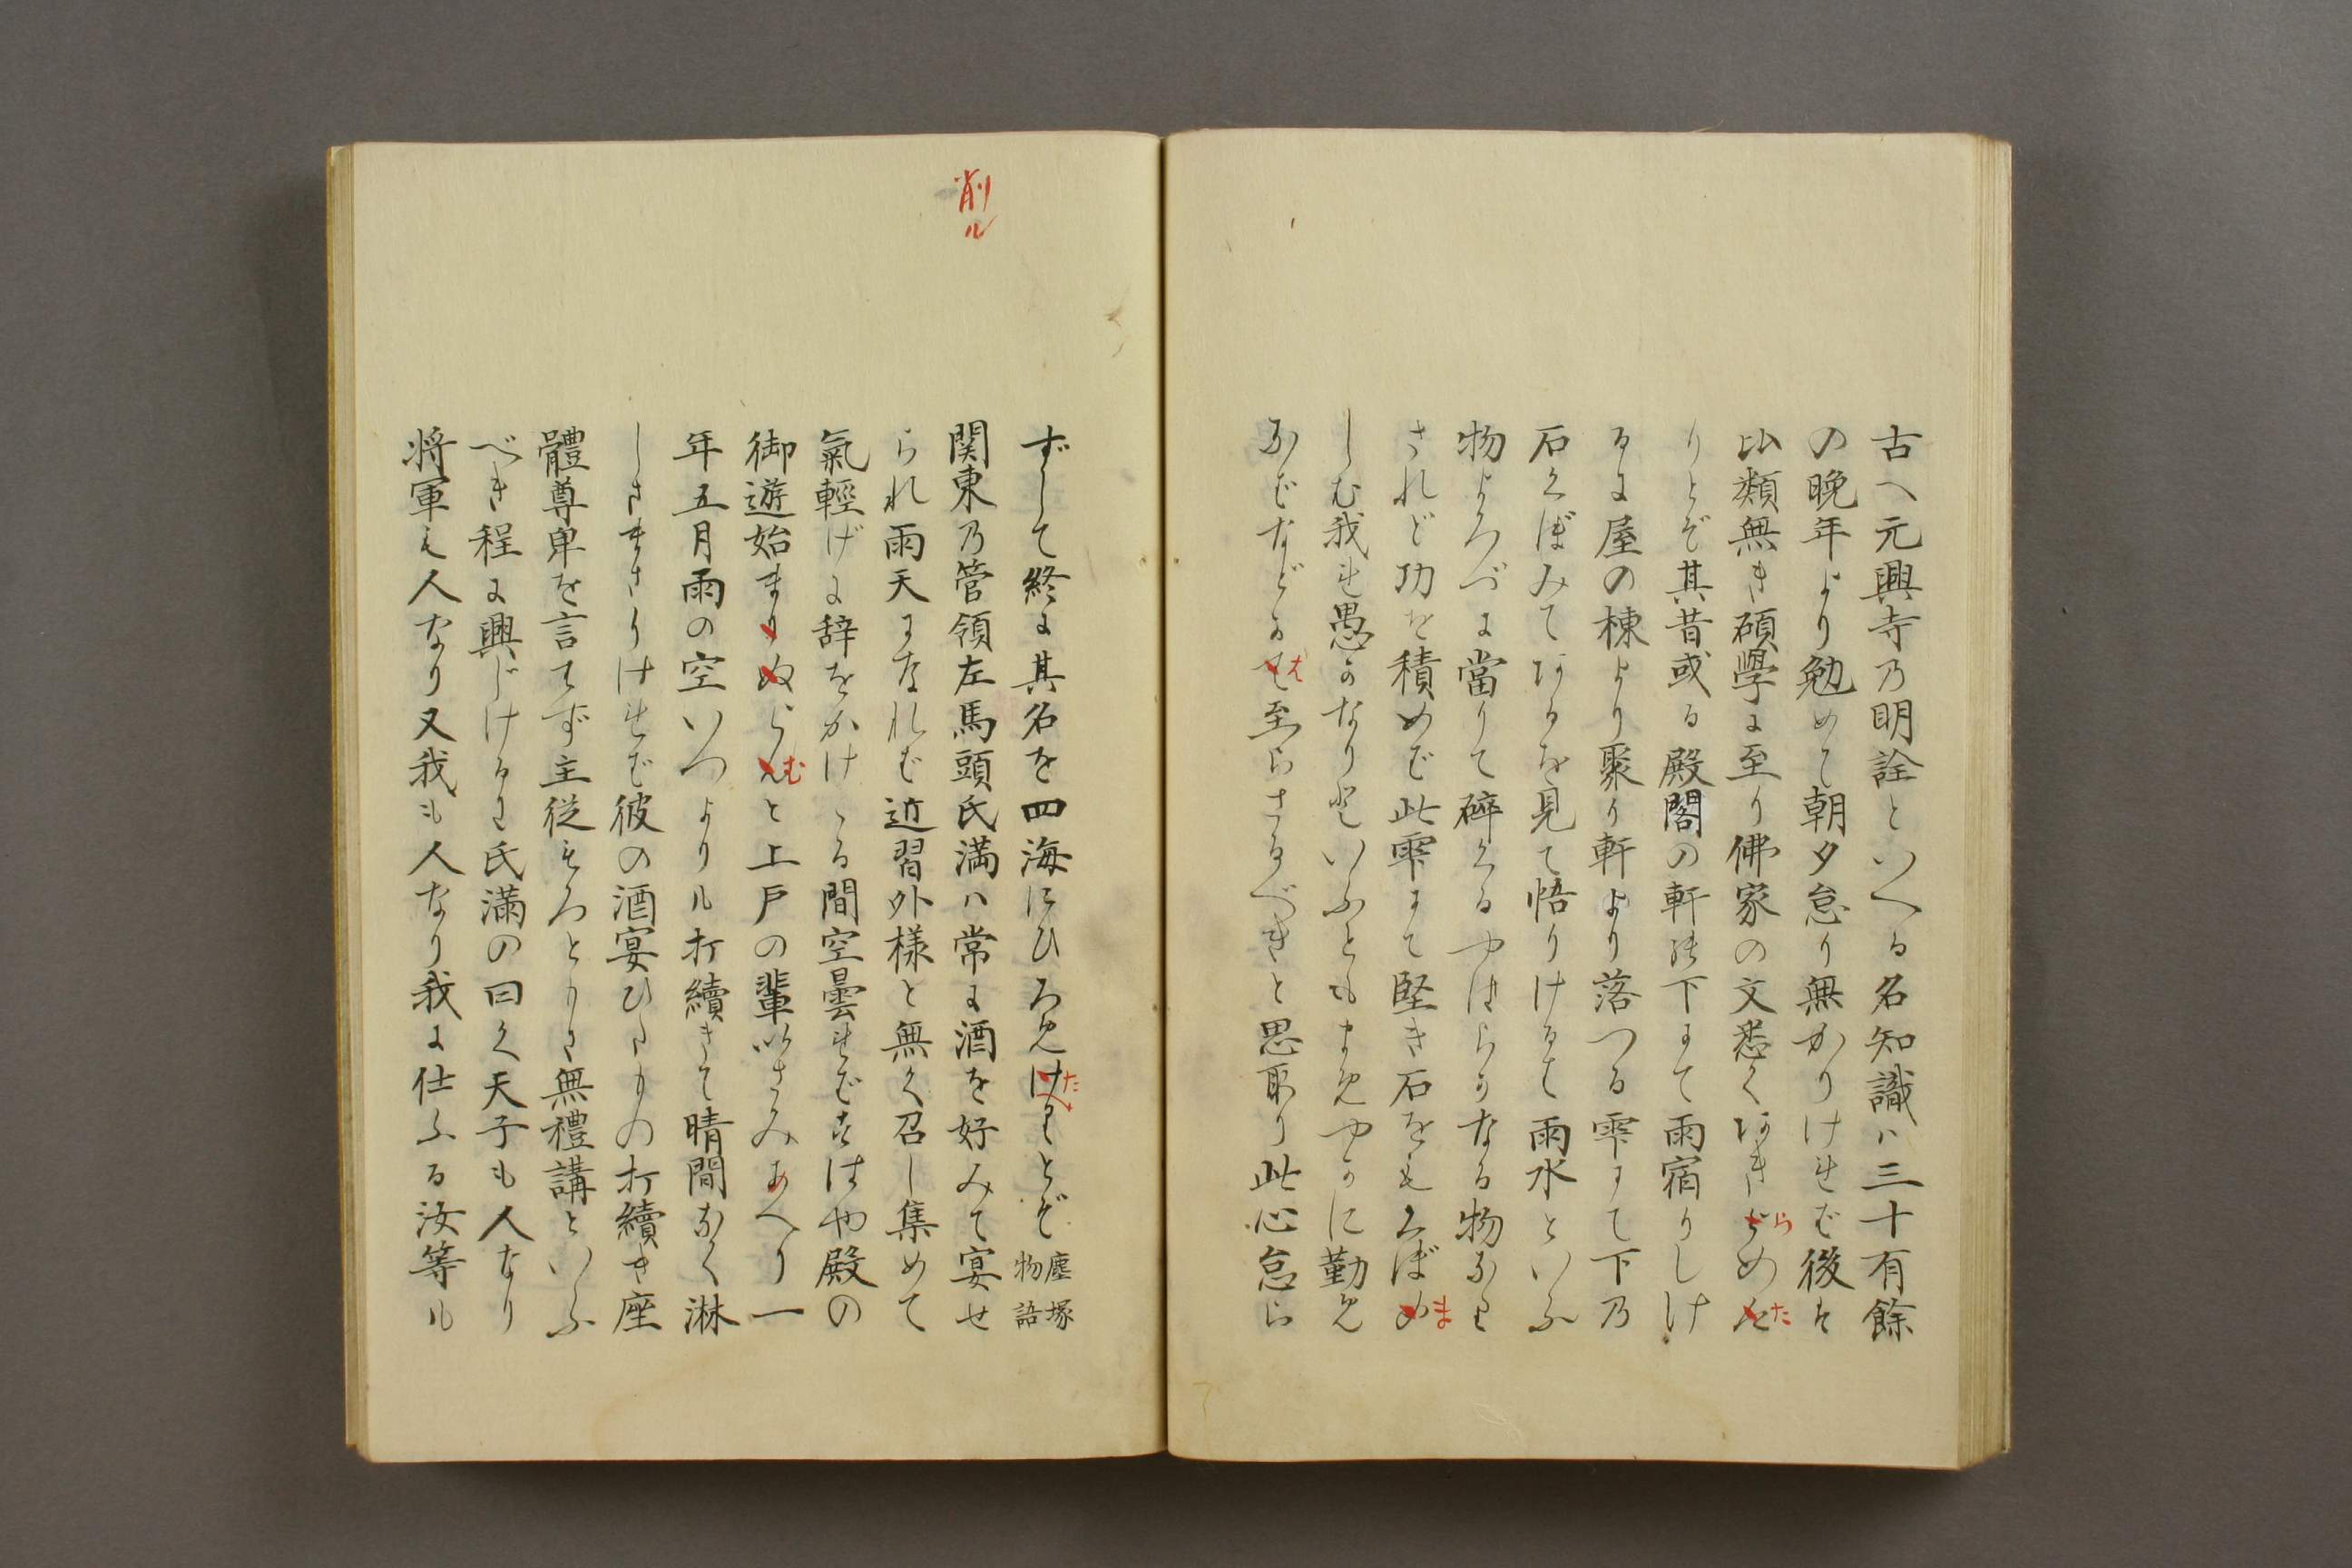 古へ元興寺乃明詮といへる名知識ハ三十有餘
の晩年より勉めて朝夕怠り無かりけれど後は
比類無き碩學に至り佛家の文悉くあきらめた
りとぞ其昔或る殿閣の軒の下にて雨宿りしけ
るに屋の棟より聚り軒より落つる雫にて下乃
石くぼみてあるを見て悟りけるて雨水といふ
物よろづに當りて碎くるやはらかなる物なり
されど功を積めば此雫にて堅き石をもくぼま
しむ我れ愚かなりといふともまめやかに勤め
なばなどかは至らさるべきと思取り此心怠ら
削ル
ずして終に其名を四海にひろめたりとぞ 塵塚
物語
関東乃管領左馬頭氏満ハ常に酒を好みて宴せ
られ雨天になれば近習外様と無く召し集めて
氣輕げに辞をかけゝる間空曇ればすはや殿の
御遊始まりぬらむと上戸の輩いさみあへり一
年五月雨の空いつよりも打續きて晴間なく淋
しさまさりければ彼の酒宴ひたもの打續き座
體尊卑を言はず主従そろとりに無禮講といふ
べき程に興じけるに氏満の曰く天子も人なり
将軍も人なり又我も人なり我に仕ふる汝等も